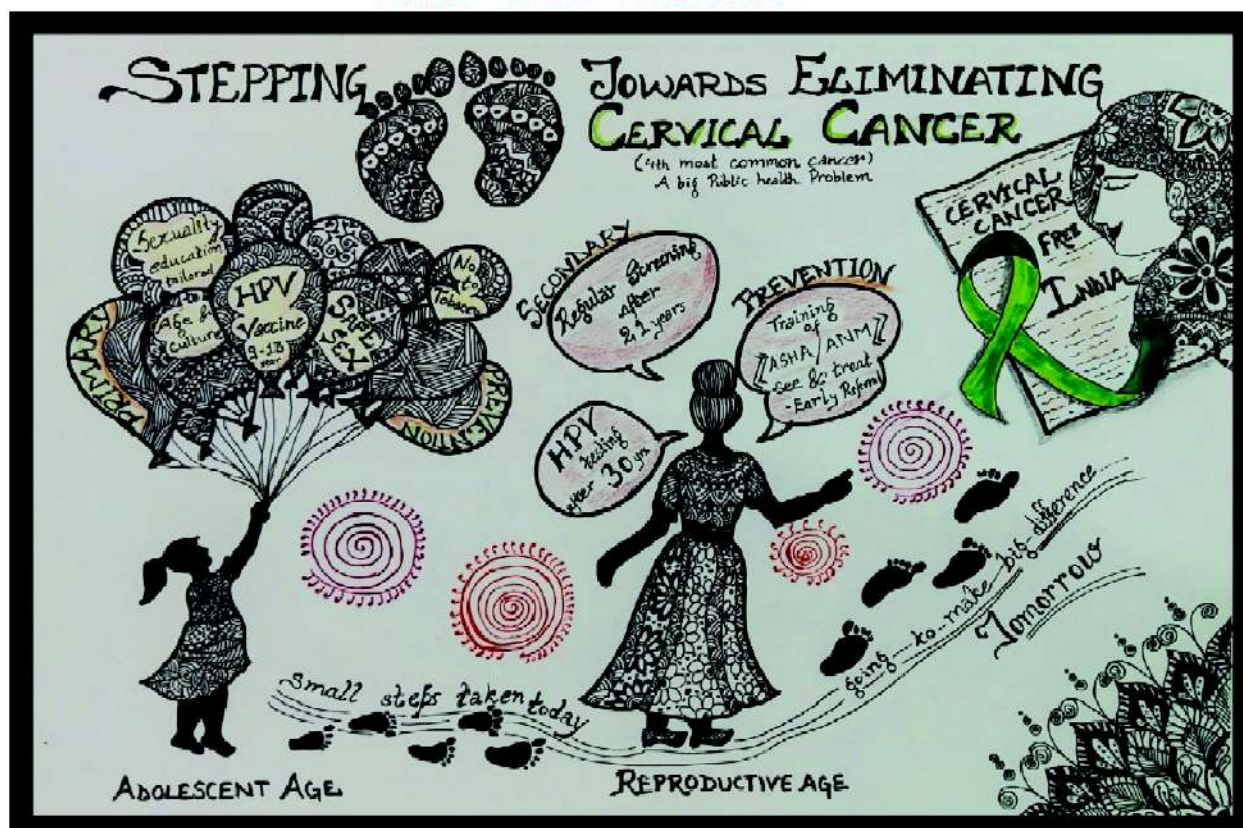 STEPPING TOWARDS ELIMINATING
CERVICAL CANCER
(4th most common cancer)
A big Public health Problem
PRIMARY
PREVENTION
Sexuality
education
tailored
to
Age &
Culture
HPV
Vaccine
9-13
year
SAFE
SEX
No
to
Tobacco
SECONDARY
PREVENTION
Regular Screening
After
years
Training
of
ASHA/ANM
See & treat
-Early Referral
HPV
testing
after 30 yrs
CERVICAL
CANCER
FREE
INDIA
Small steps taken today
going to make big difference
Tomorrow
ADOLESCENT AGE
REPRODUCTIVE AGE